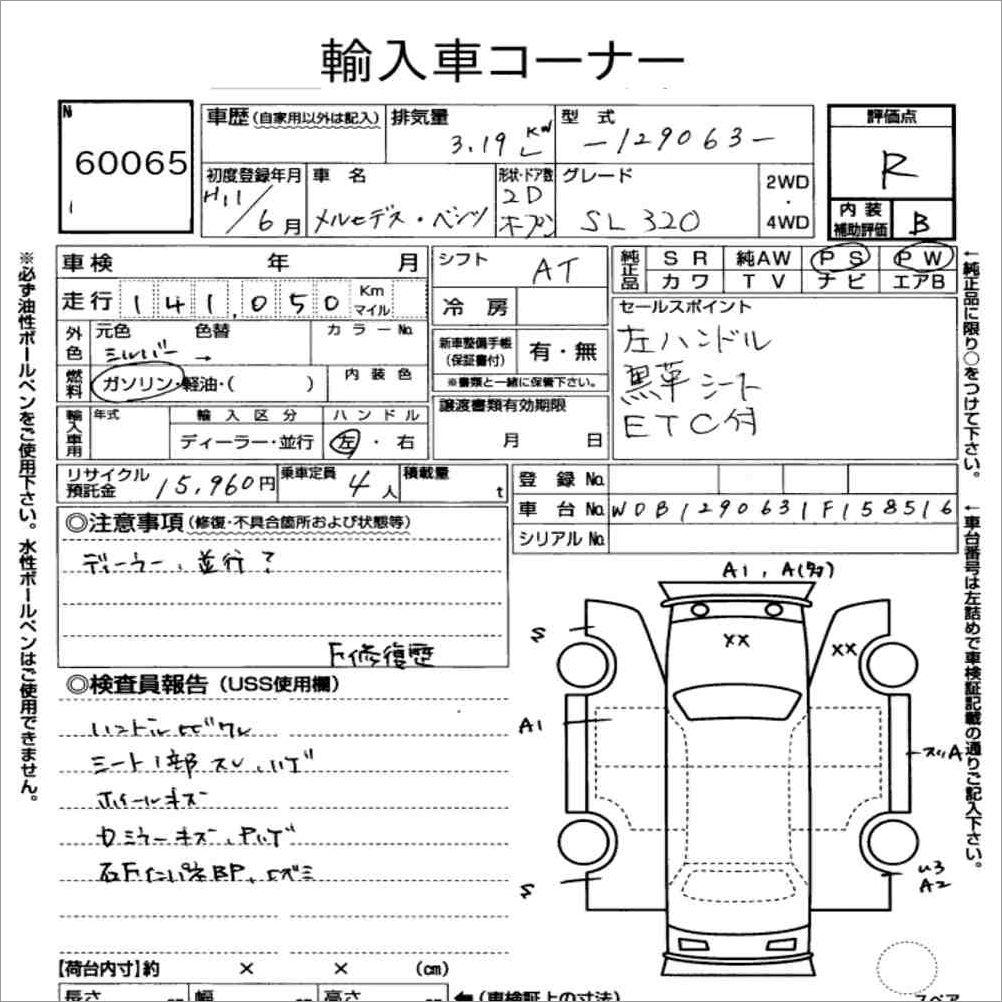 輸入車コーナー
№ 60065
車歴(自家用以外は記入) 排気量 3.19 KW L 型式 -129063- 評価点 R
初度登録年月 H11/6月 車名 メルセデス・ベンツ 形状・ドア数 2D オープン グレード SL320 2WD・4WD 内装補助評価 B
車検 年 月 シフト AT 純正品 SR 純AW PS PW
カワ TV ナビ エアB
走行 141,050 Km マイル 冷房 セールスポイント
外色 元色 色替 カラーNo. 左ハンドル
シルバー → 新車整備手帳(保証書付) 有・無 黒革シート
燃料 ガソリン・軽油・( ) 内装色 ※書類と一緒に保管下さい。 ETC付
輸入車用 年式 輸入区分 ハンドル 譲渡書類有効期限
ディーラー・並行 左・右 月 日
リサイクル預託金 15,960円 乗車定員 4人 積載量 t 登録No.
車台No. WDB1290631F158516
シリアルNo.
◎注意事項(修復・不具合箇所および状態等)
ディーラー、並行?
F修復歴
◎検査員報告(USS使用欄)
シート1部スレ、ハゲ
ホイールキズ
A1, A
XX
XX
S
A1
A
S
U3
A2
【荷台内寸】約 × × (cm)
長さ 幅 高さ ←(車検証上の寸法)
スペア
※必ず油性ボールペンをご使用下さい。水性ボールペンはご使用できません。
←純正品に限り○をつけて下さい。
←車台番号は左詰めで車検証記載の通りご記入下さい。